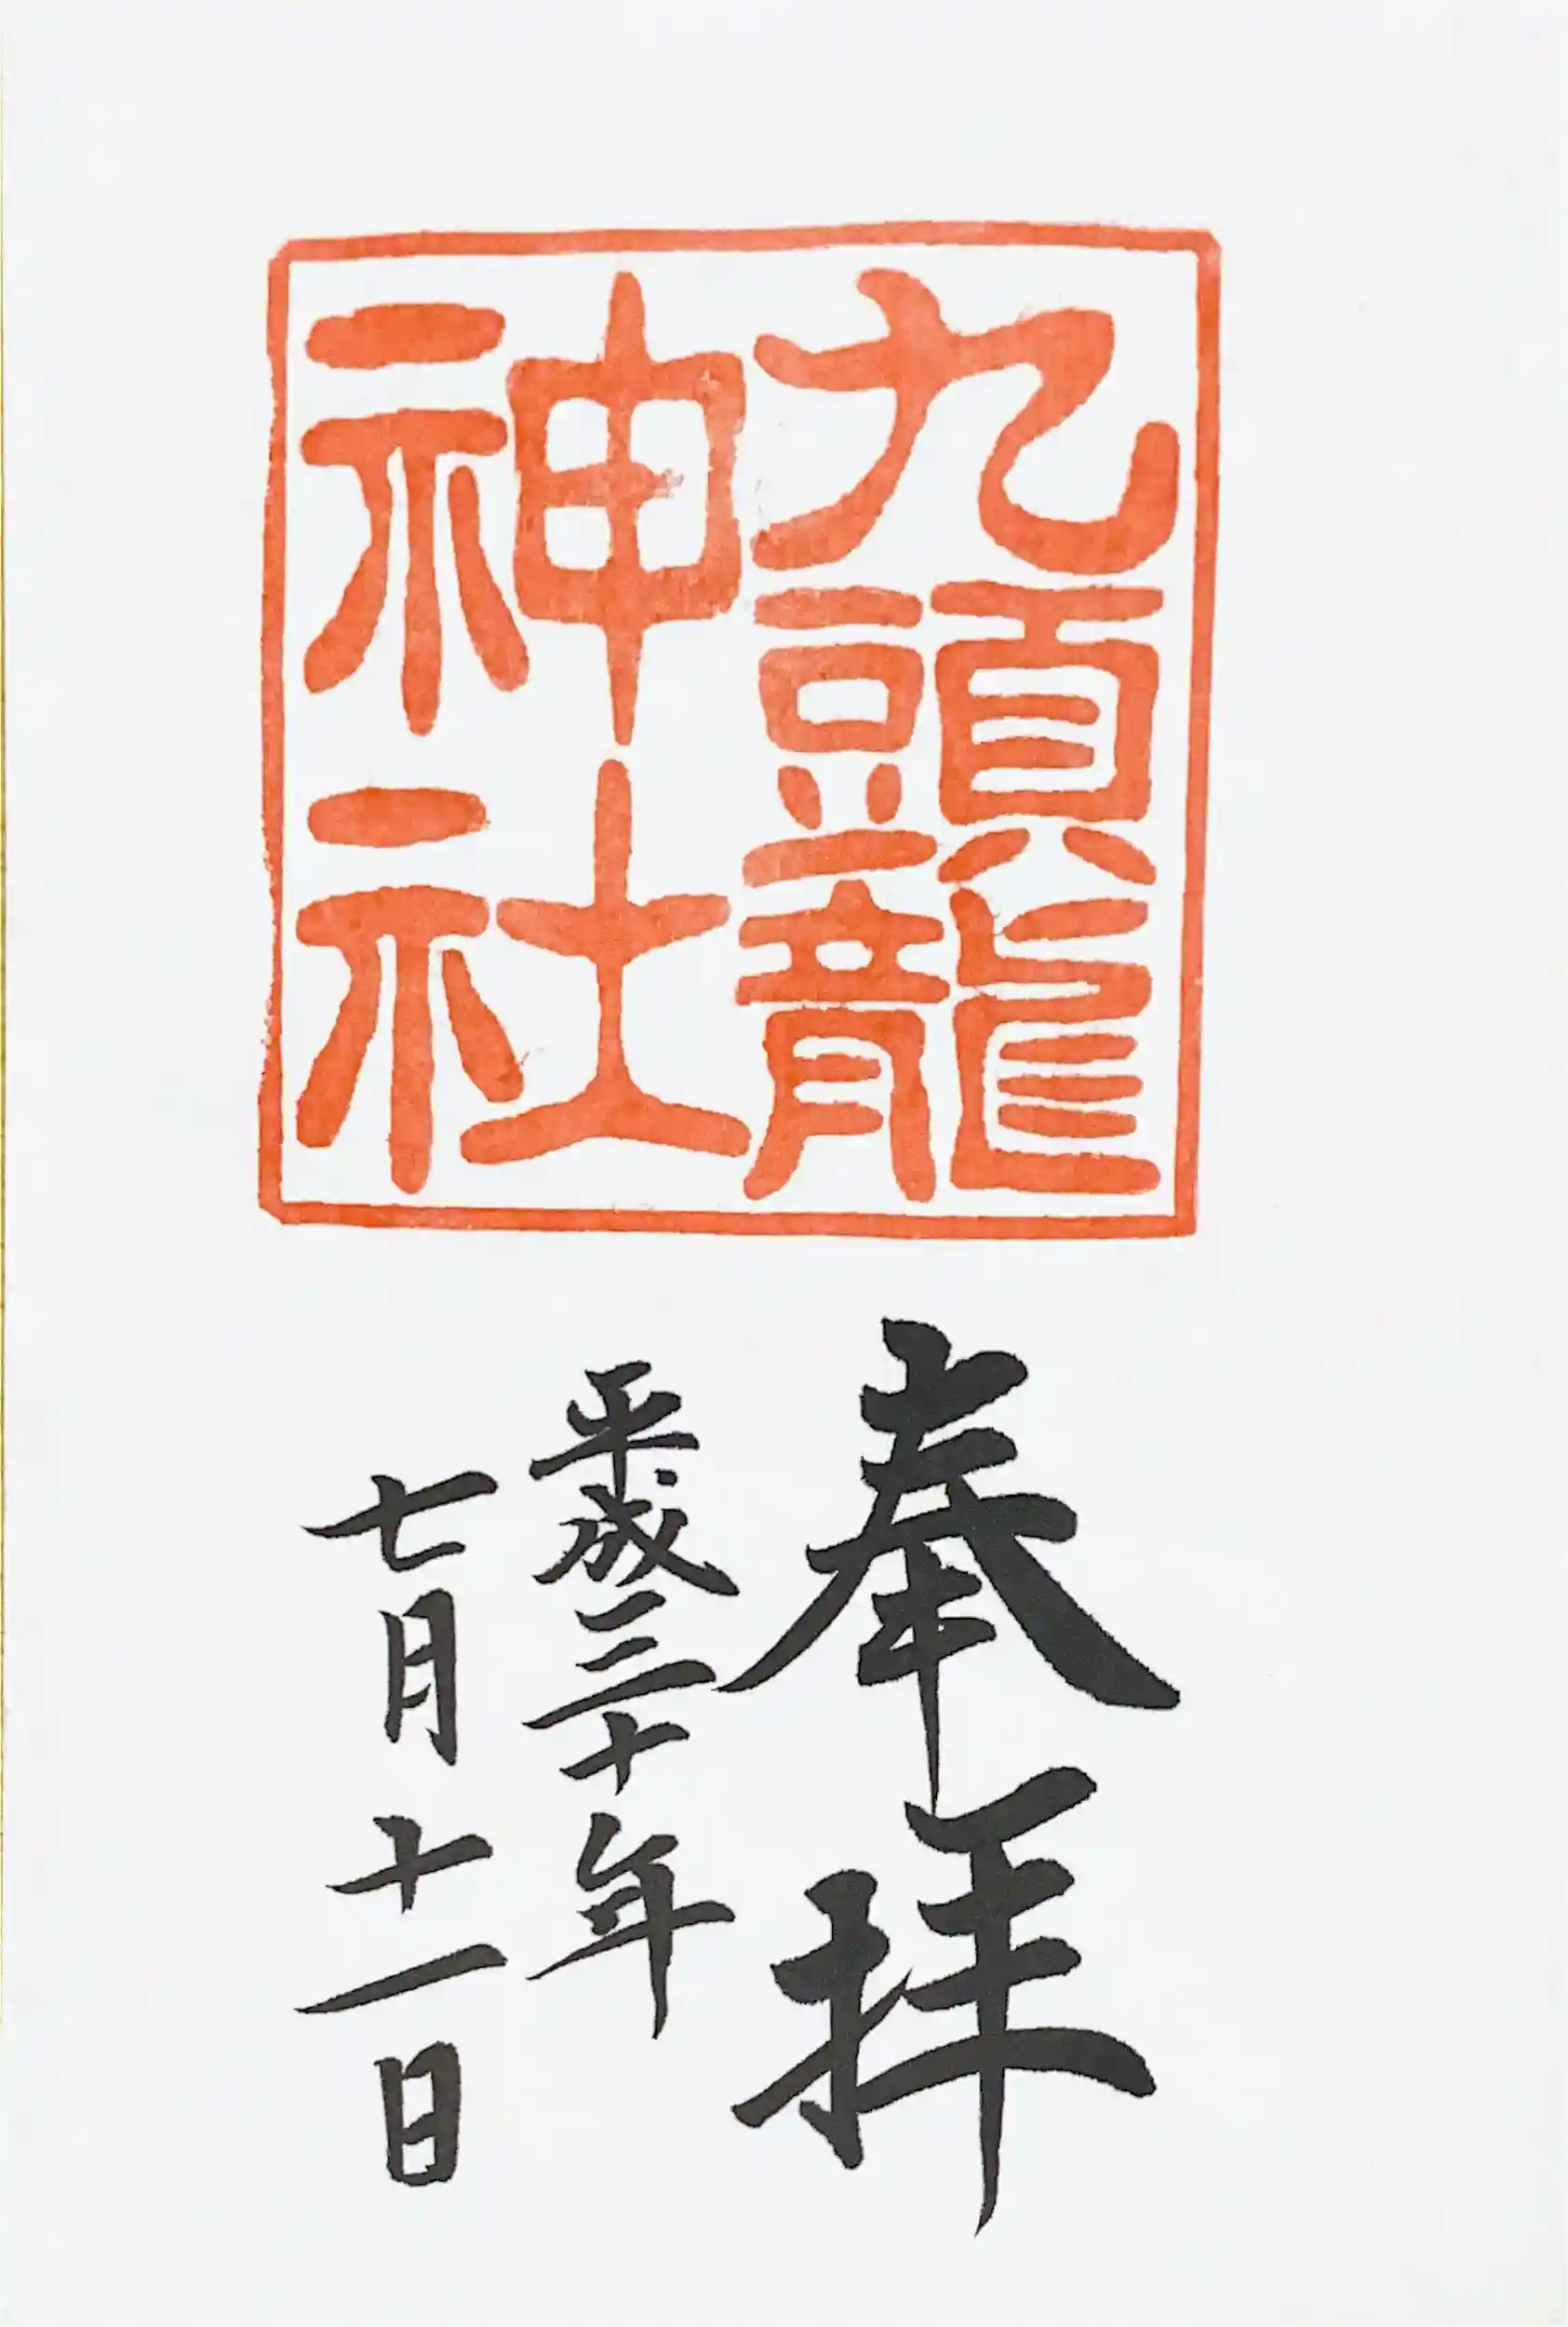 九頭龍
神社
奉拝
平成三十年
七月十一日